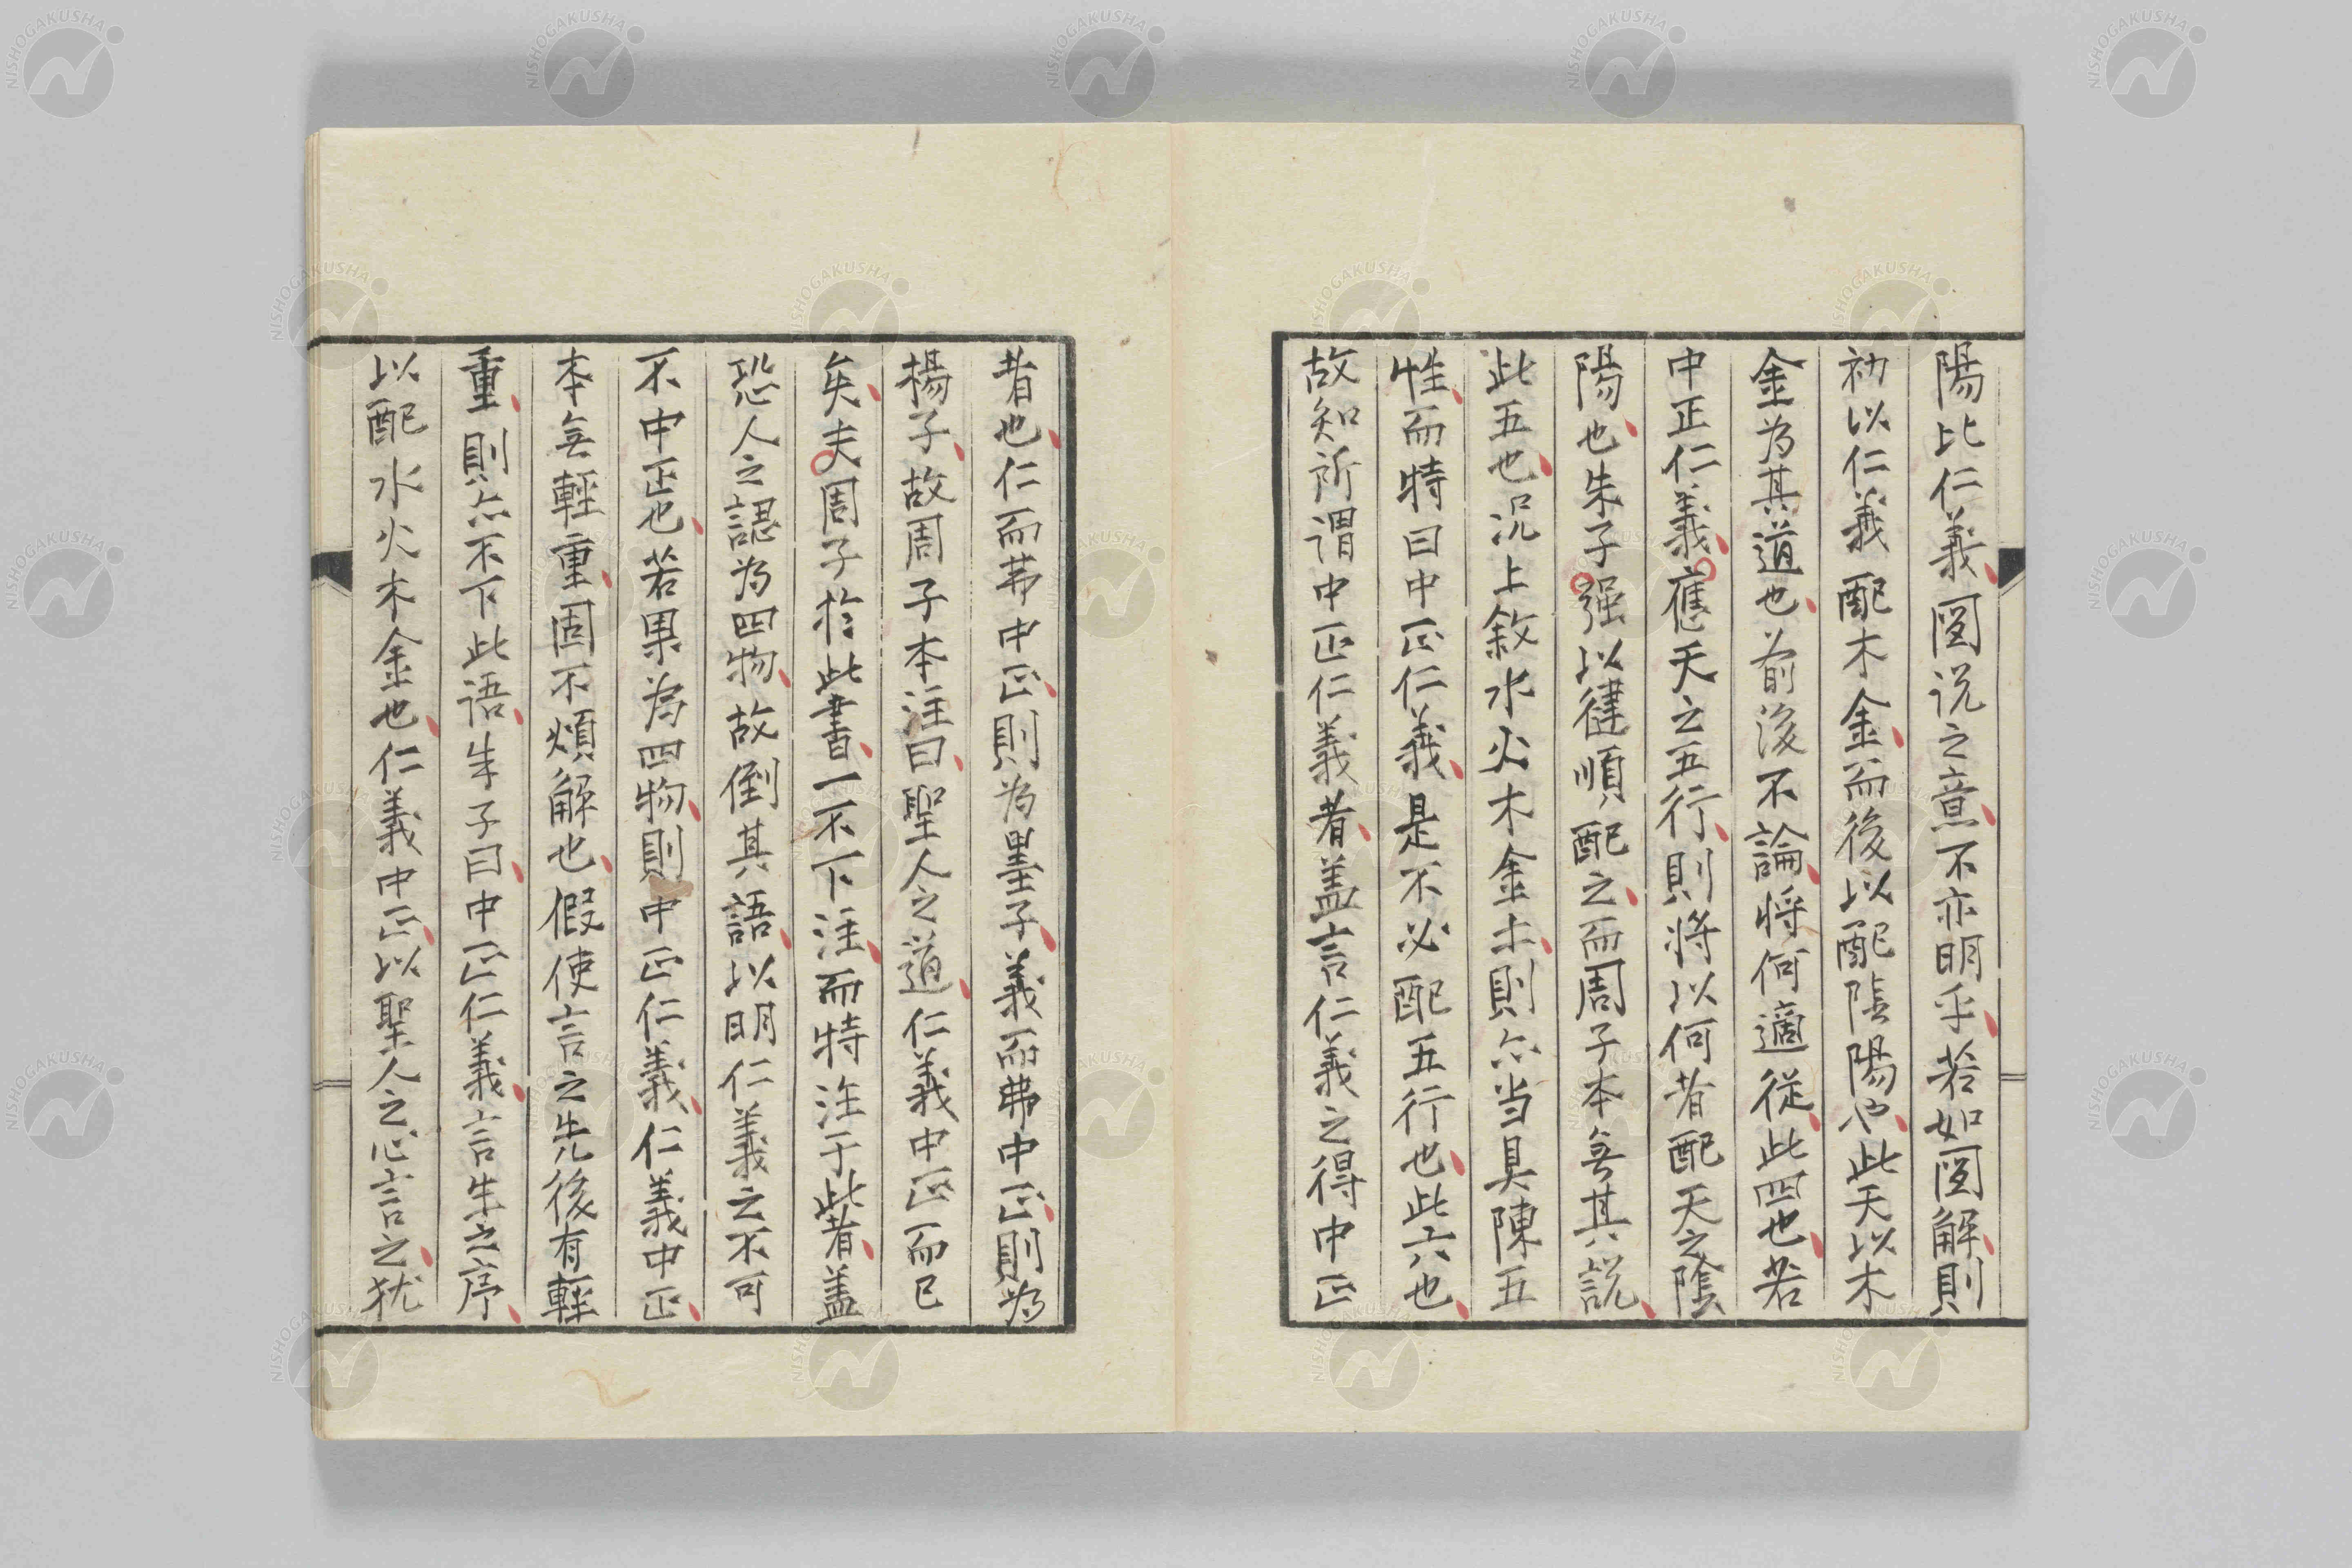 陽比仁義圖说之意不亦明乎若如圖解則
初以仁義配木金而後以配陰陽也此天以木
金为其道也前後不論将何適從此四也若
中正仁義應天之五行則将以何者配天之陰
陽也朱子强以健順配之而周子本無其説
此五也况上敘水火木金土則亦当具陳五
性而特曰中正仁義是不必配五行也此六也
故知所謂中正仁義者盖言仁義之得中正
者也仁而弗中正則为墨子義而弗中正則为
楊子故周子本注曰聖人之道仁義中正而已
矣夫周子於此書一不下注而特注于此者盖
恐人之認为四物故倒其語以明仁義之不可
不中正也若果为四物則中正仁義仁義中正
本無輕重固不煩解也假使言之先後有輕
重則亦不下此語朱子曰中正仁義言生之序
以配水火木金也仁義中正以聖人之心言之犹
NISHOGAKUSHA